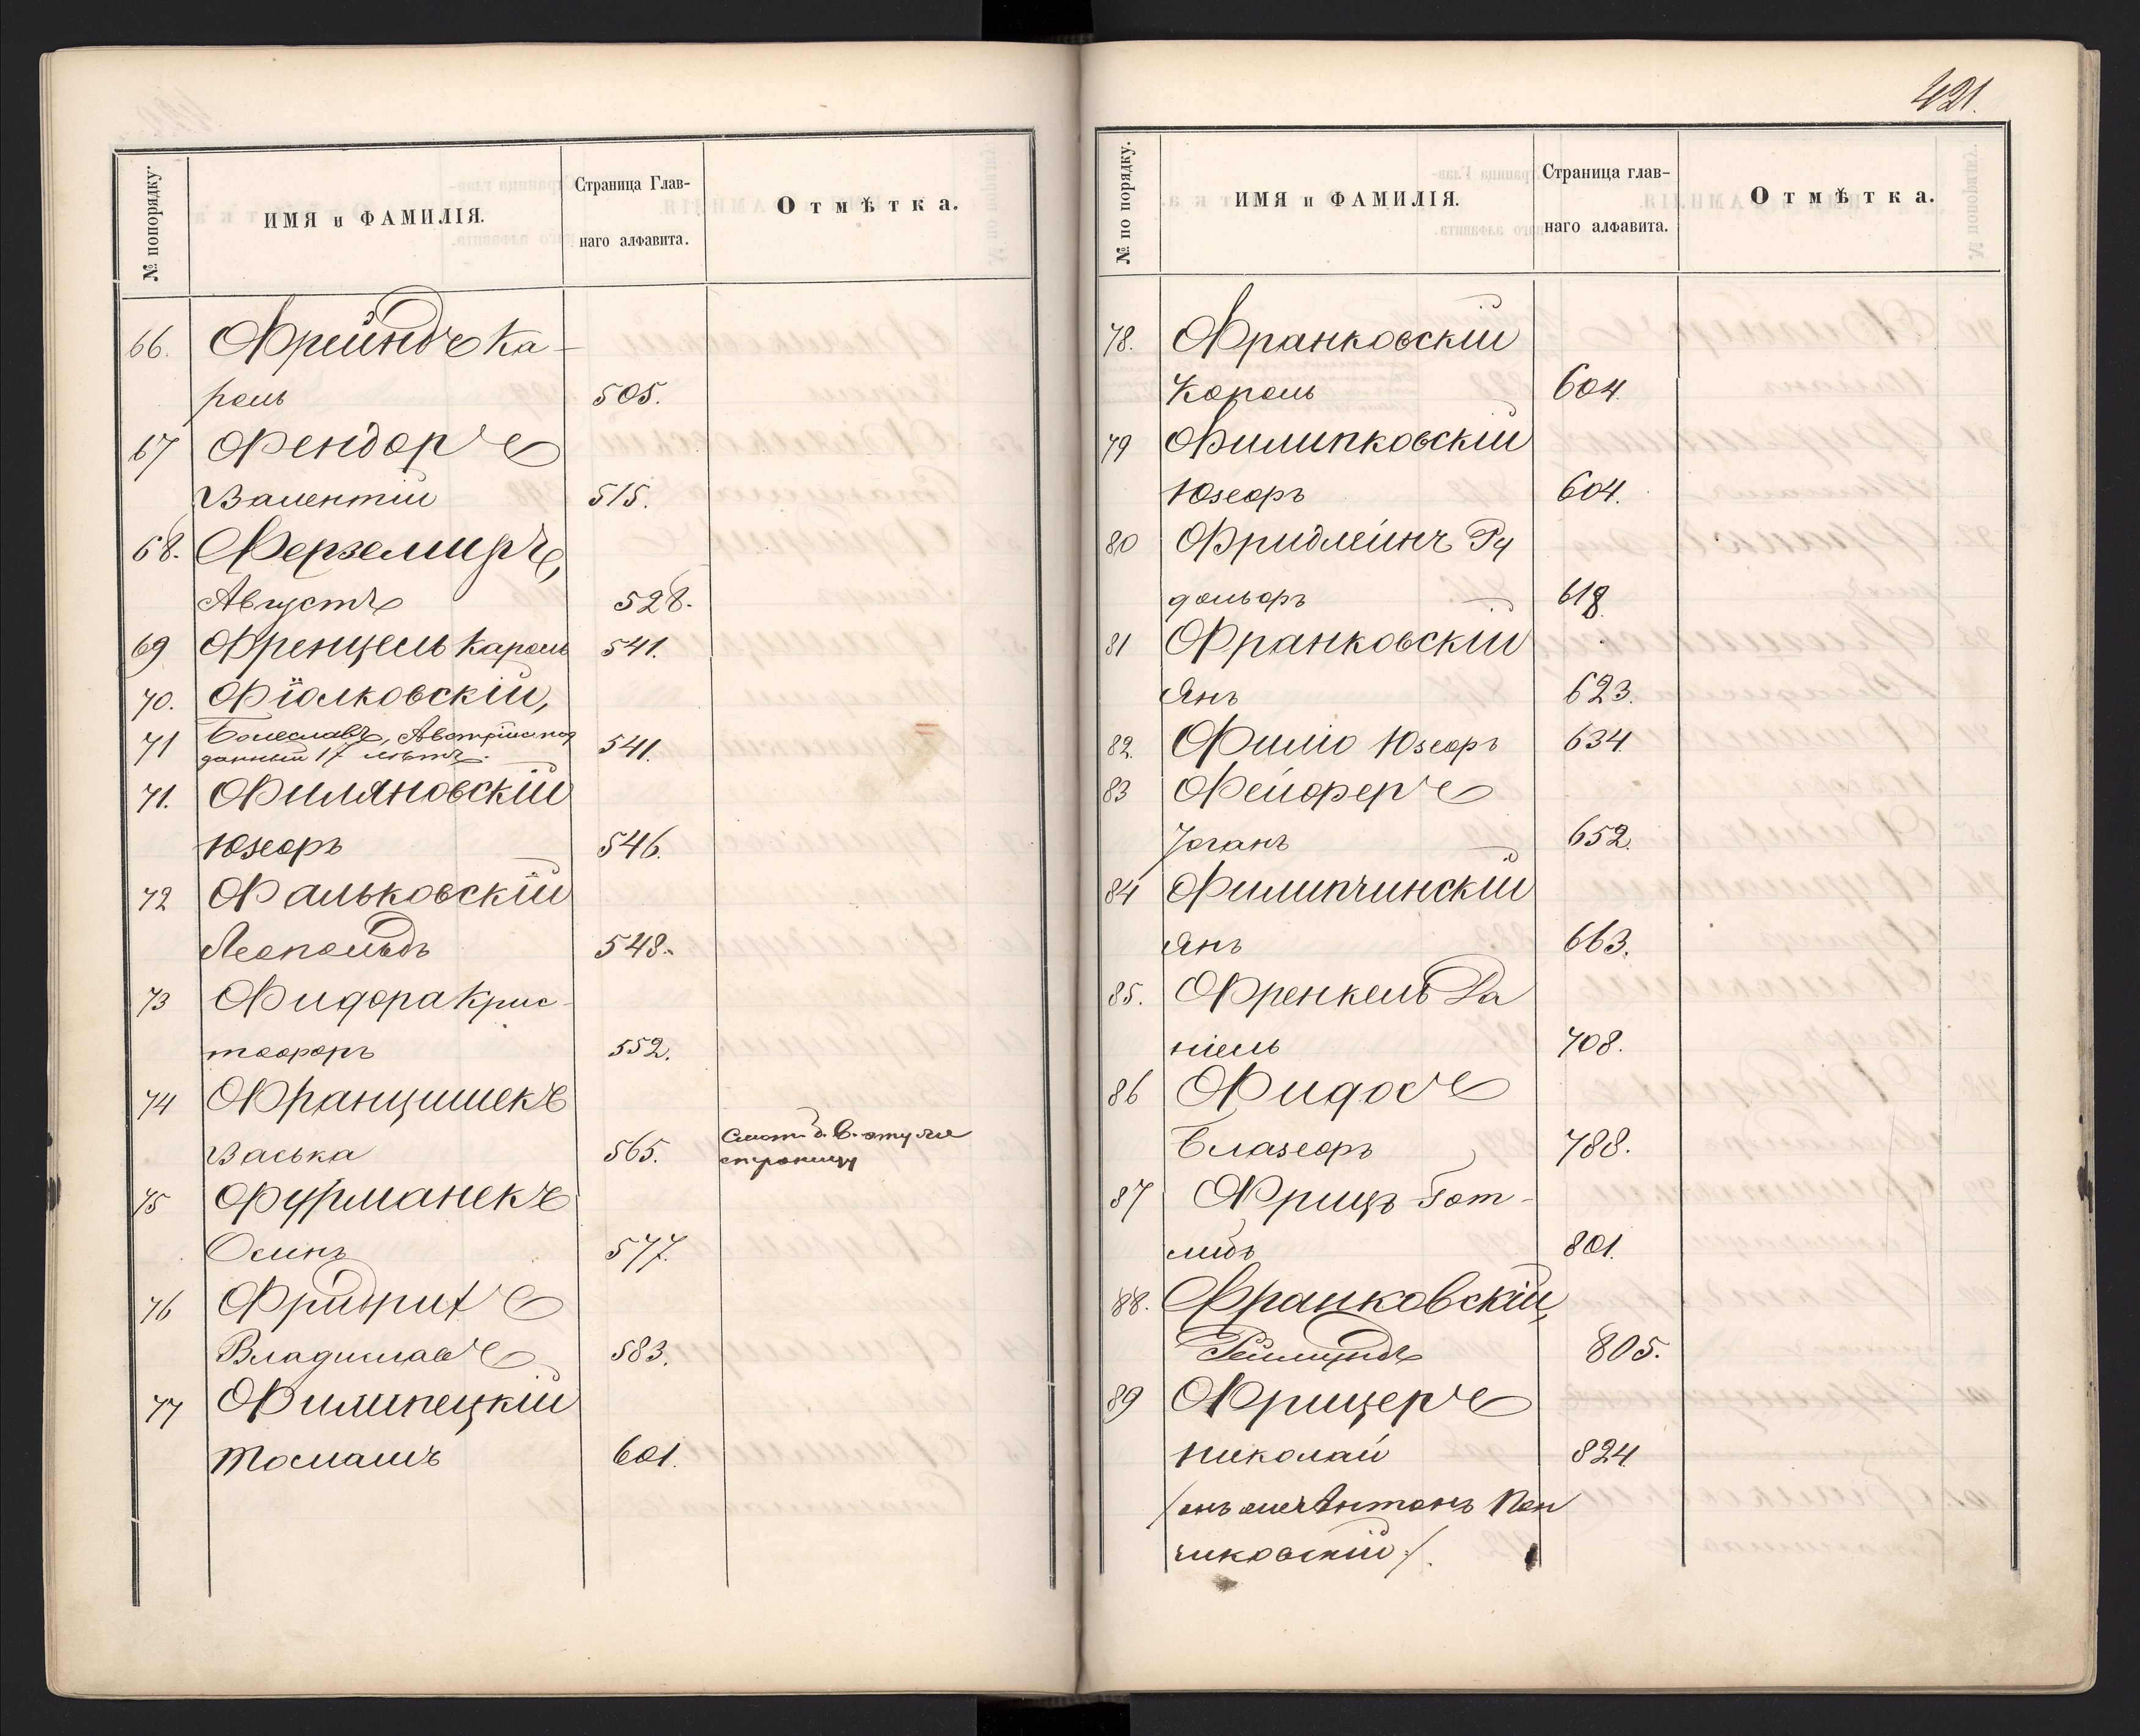 № попорядку.
ИМЯ и ФАМИЛІЯ.
Страница Глав-
наго алфавита.
Отмѣтка.
66. Фрейндъ Ка-
роль 505.
67 Фендоръ
Валентій 515.
68.
Августъ 528.
69 Френцель Кароль 541.
70. Фіолковскій,
71 Болеславъ, Австрійс. под
данный 17 лѣтъ. 541.
71. Филяновскій
Юзефъ 546.
72 Фальковскій
Леопольдъ 548.
73 Фидора Крис-
тофоръ 552.
74 Францишекъ
Васька 565. Смот. д. В. эту же
страницу
75 Фурманекъ
Осипъ 577.
76 Фридрихъ
Владиславъ 583.
77 Филипецкій
Томашъ 601.
421.
№ по порядку.
ИМЯ и ФАМИЛІЯ.
Страница глав-
наго алфавита.
Отмѣтка.
78. Франковскій
Кароль 604.
79 Филипковскій
Юзефъ 604.
80 Фридлейнъ Ру
дольфъ 618.
81 Франковскій
Янъ 623.
82. Филіо Юзефъ 634.
83 Фейферъ
Іоганъ 652.
84 Филипчинскій
Янъ 663.
85. Френкель Да
ніель 708.
86 Фидосъ
Блазефъ 788.
87 Фрицъ Гот-
либъ 801.
88. Франковскій,
805.
89 Фрицеръ
Николай 824.
/онъ же Антонъ Пон
чиковскій/.